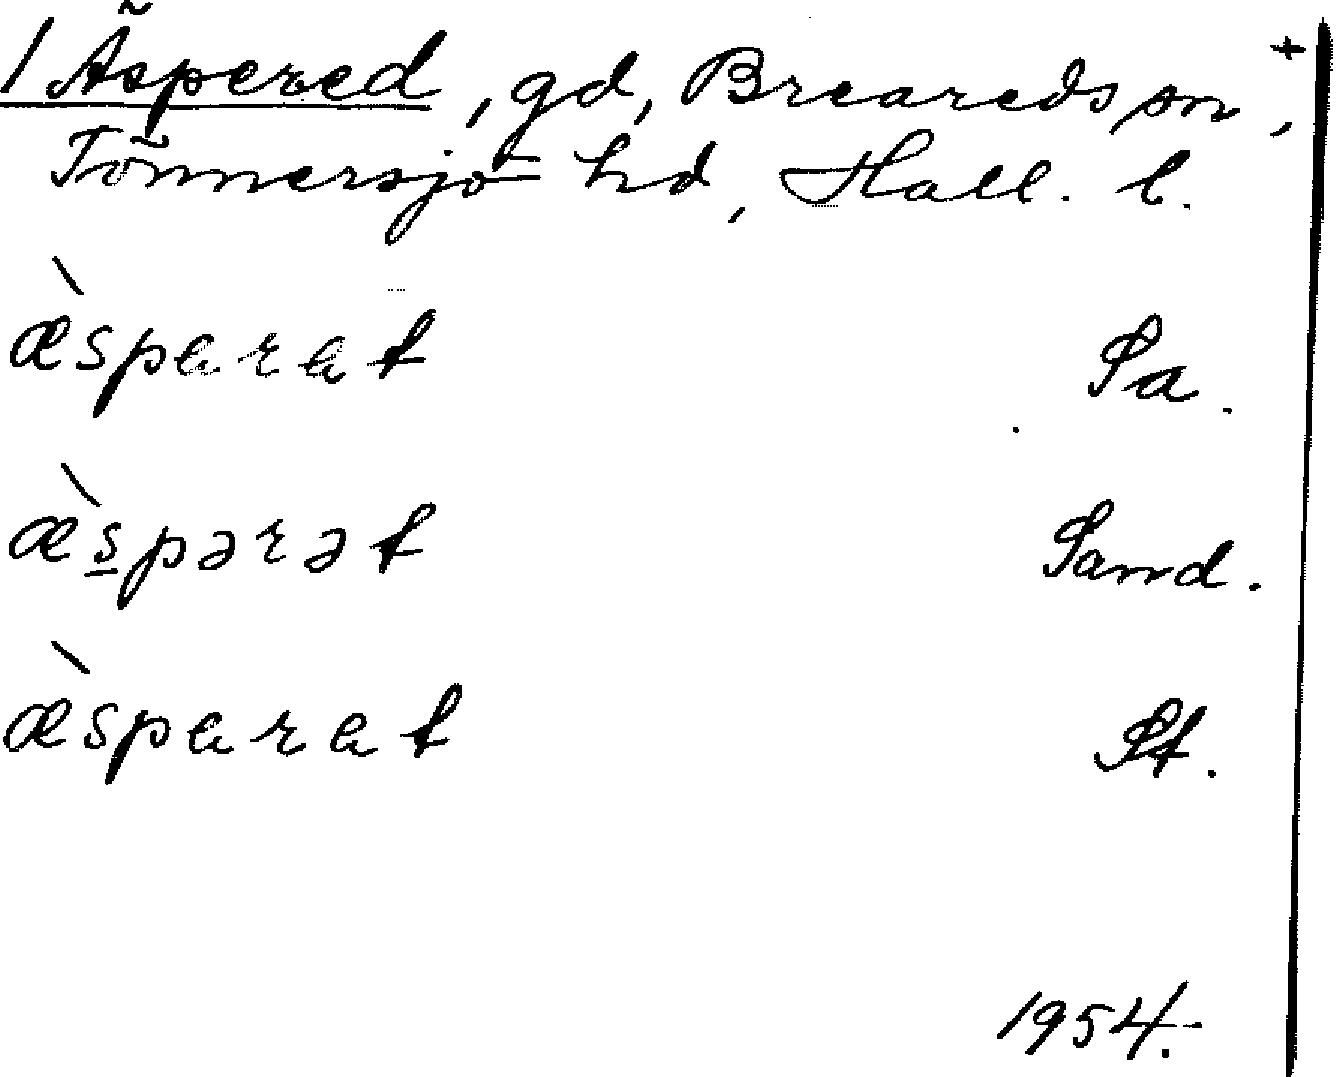 1 Äspered, gd, Breareds sn, +
Tönnersjö hd, Hall. l.
æ̀sparat Sa.
æ̀s̲pərət Sand.
æ̀sparat St.
1954.